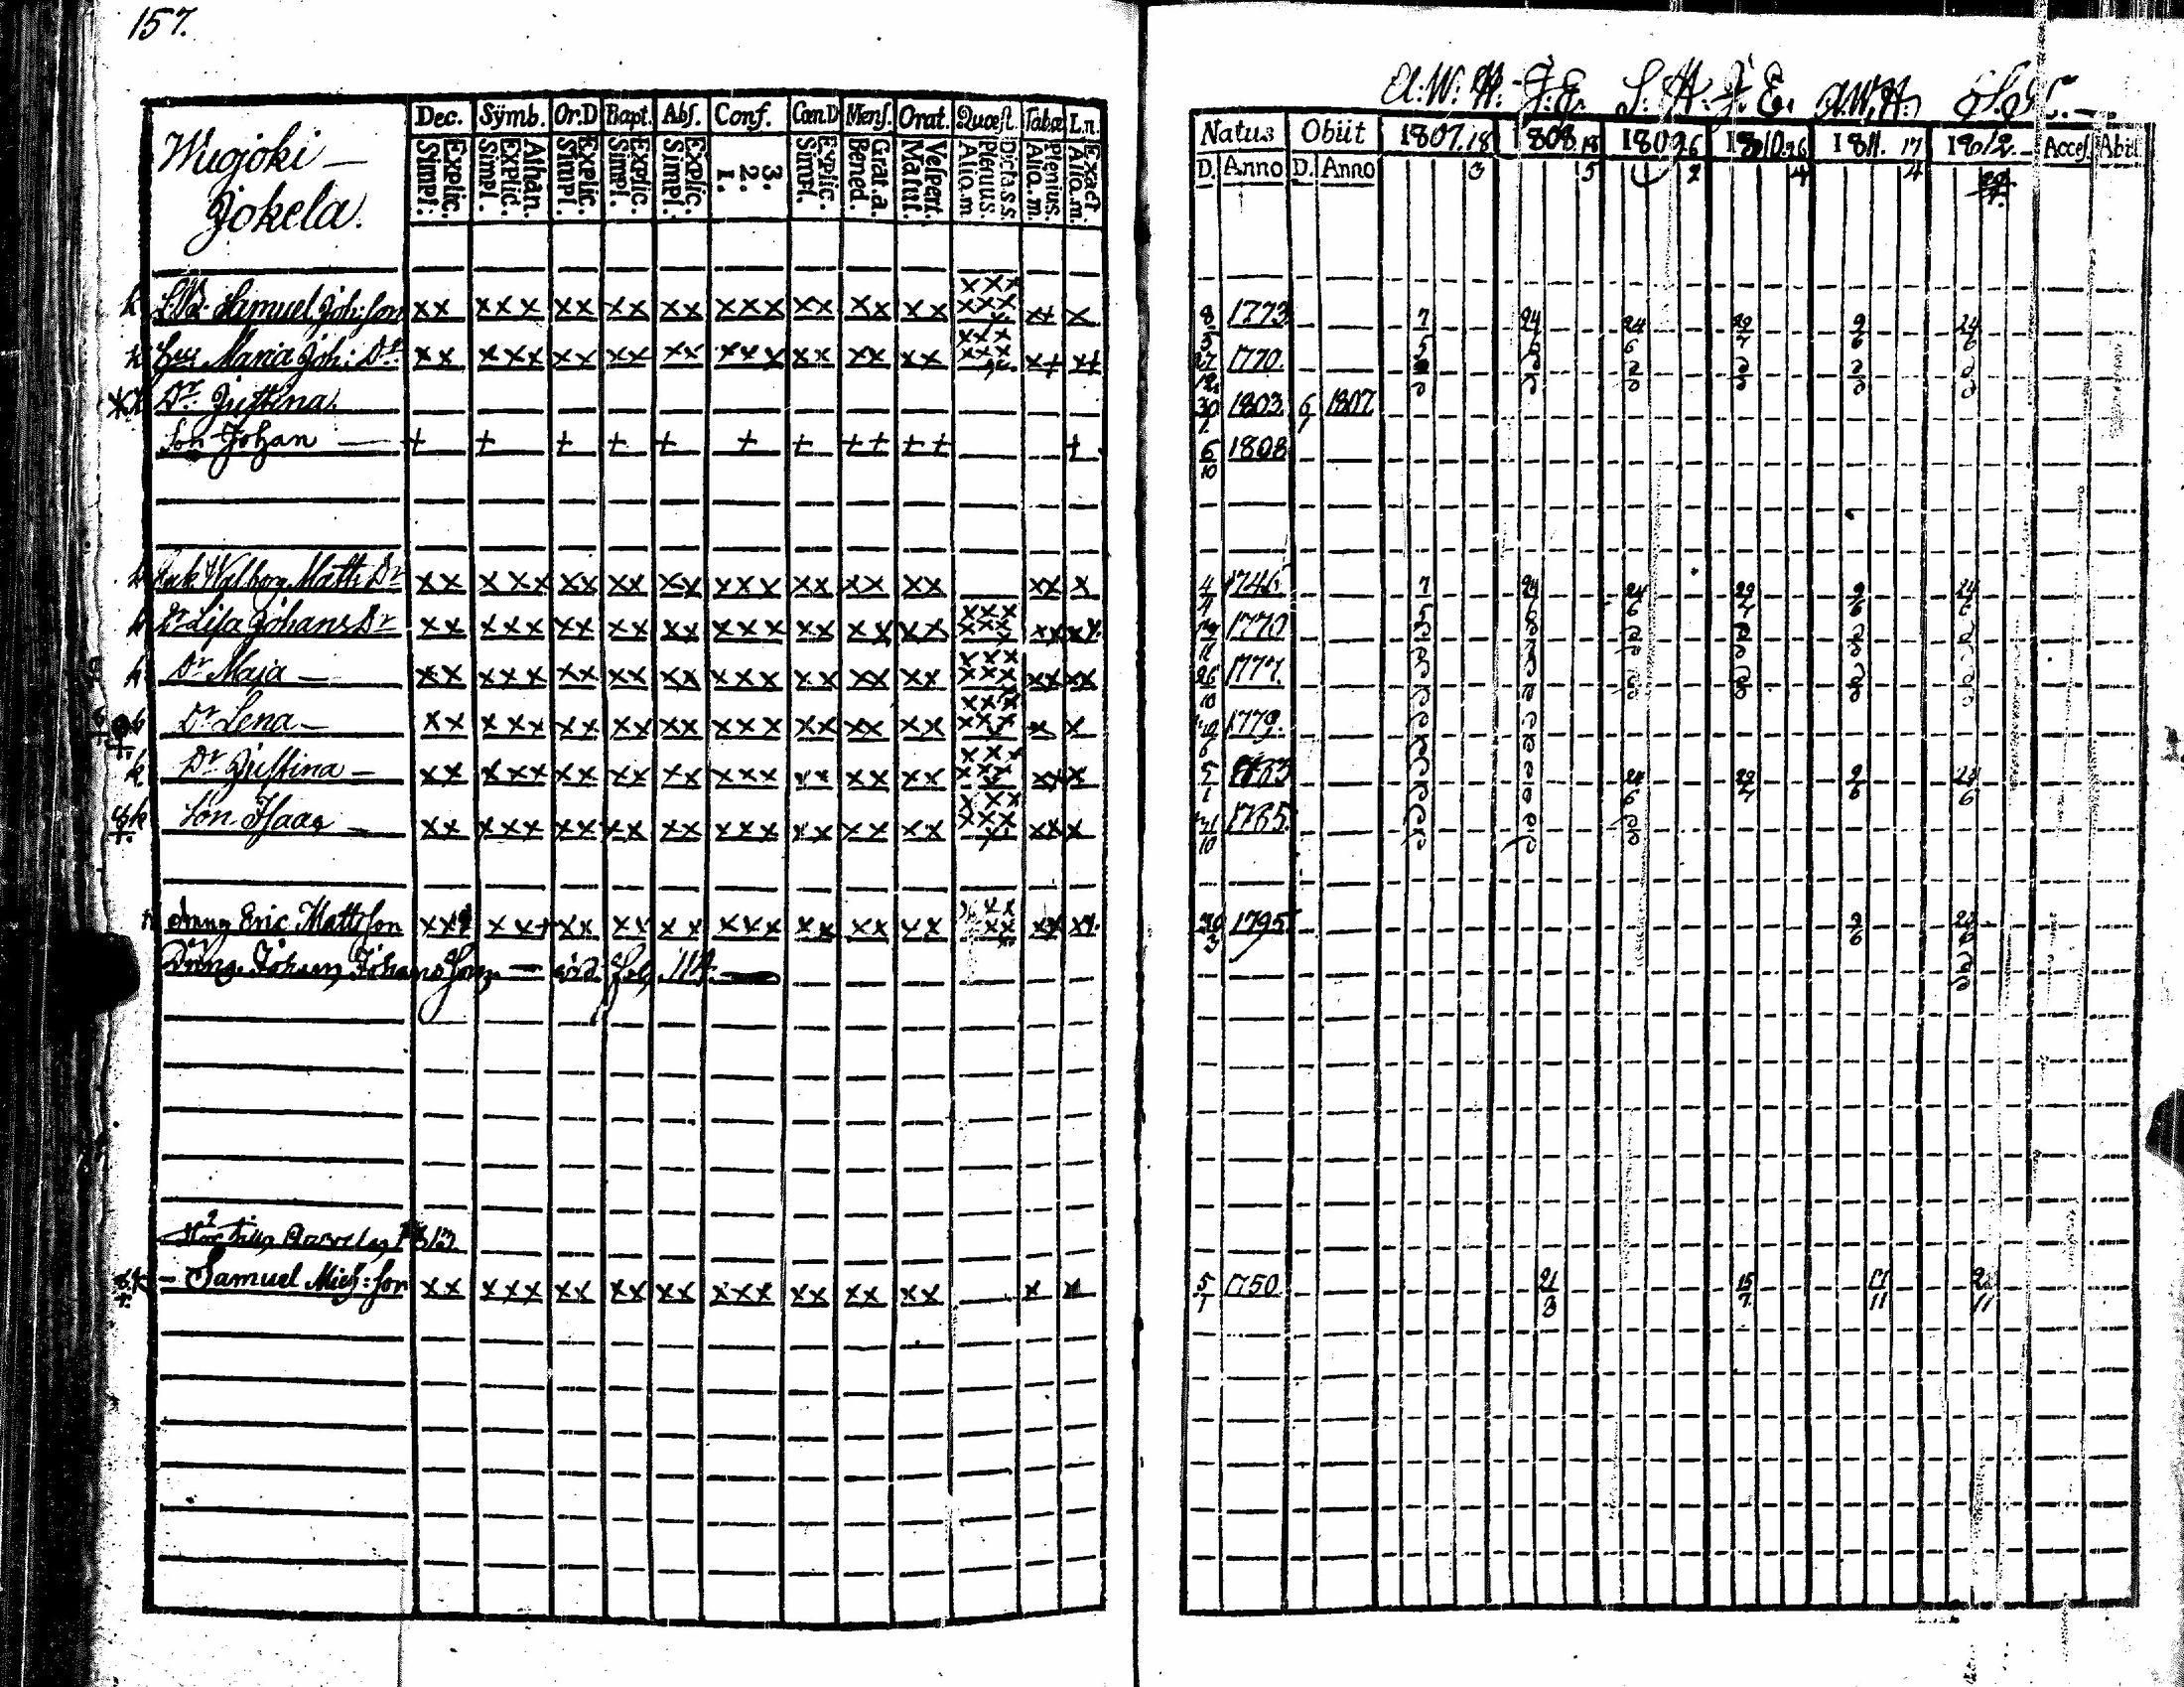 157.
A. W. H. J. E. S. H. J. E. A. W. H.
Wugjoki —
Jokela.
Dec. Symb. Or.D Bapt. Abs. Conf. Cœn.D Mens. Orat. Quæst. Tabæ L.n.
Explic. Simpl. Athan. Explic. Simpl. Explic. Simpl. Explic. Simpl. Explic. Simpl. 3. 2. 1. Explic. Simpl. Grat. a. Bened. Vespert. Matut. Dicta s.s. Plerius. Alio. m Plenius. Alio. m. Exact. Alio. m.
Natus Obiit 1807. 18 1808. 18 1809 26 1810. 26 1811. 17 1812. — Acces. Abit.
D. Anno D. Anno 3 5 2 4 4
k Samuel Joh: Son xx xxx xx xx xx xxx xx xx xx xxx xxx x xx x 8/5 1773 7/5 24/6 24/6 29/7 9/6 24/6
k Maria Joh: Dr xx xxx xx xx xx xxx xx xx xx xxx xxx x xx xx 27/12 1770.
Dr Justina. 30/1 1803 6/7 1807
Son Johan — + + + + + + + ++ ++ + 6/10 1808
Enk Walborg Matts Dr xx xxx xx xx xx xxx xx xx xx xx x 4/4 1746 7/5 24/6 24/6 29/7 9/6 24/6
Dr Lisa Johans Dr xx xxx xx xx xx xxx xx xx xx xxx xxx xx xx 1770
k Dr Maja — xx xxx xx xx xx xxx xx xx xx xxx xxx xx xx 26/10 1777.
Dr Lena — xx xxx xx xx xx xxx xx xx xx xxx xxx x x 1779.
k Dr Justina — xx xxx xx xx xx xxx xx xx xx xxx xxx xx x 5/1 1783 24/6 29/7 9/6 24/6
k Son Isaac — xx xxx xx xx xx xxx xx xx xx xxx xxx x xx x 21/10 1765.
Dräng Eric Mattsson xx xxx xx xx xx xxx xx xx xx xx xx xx xx 30/3 1795 9/6
Dräng Johan Johansson — vid. fol. 114. —
1813.
k — Samuel Mich: son xx xxx xx xx xx xxx xx xx xx x x 5/1 1750 21/3 15/7 17/11